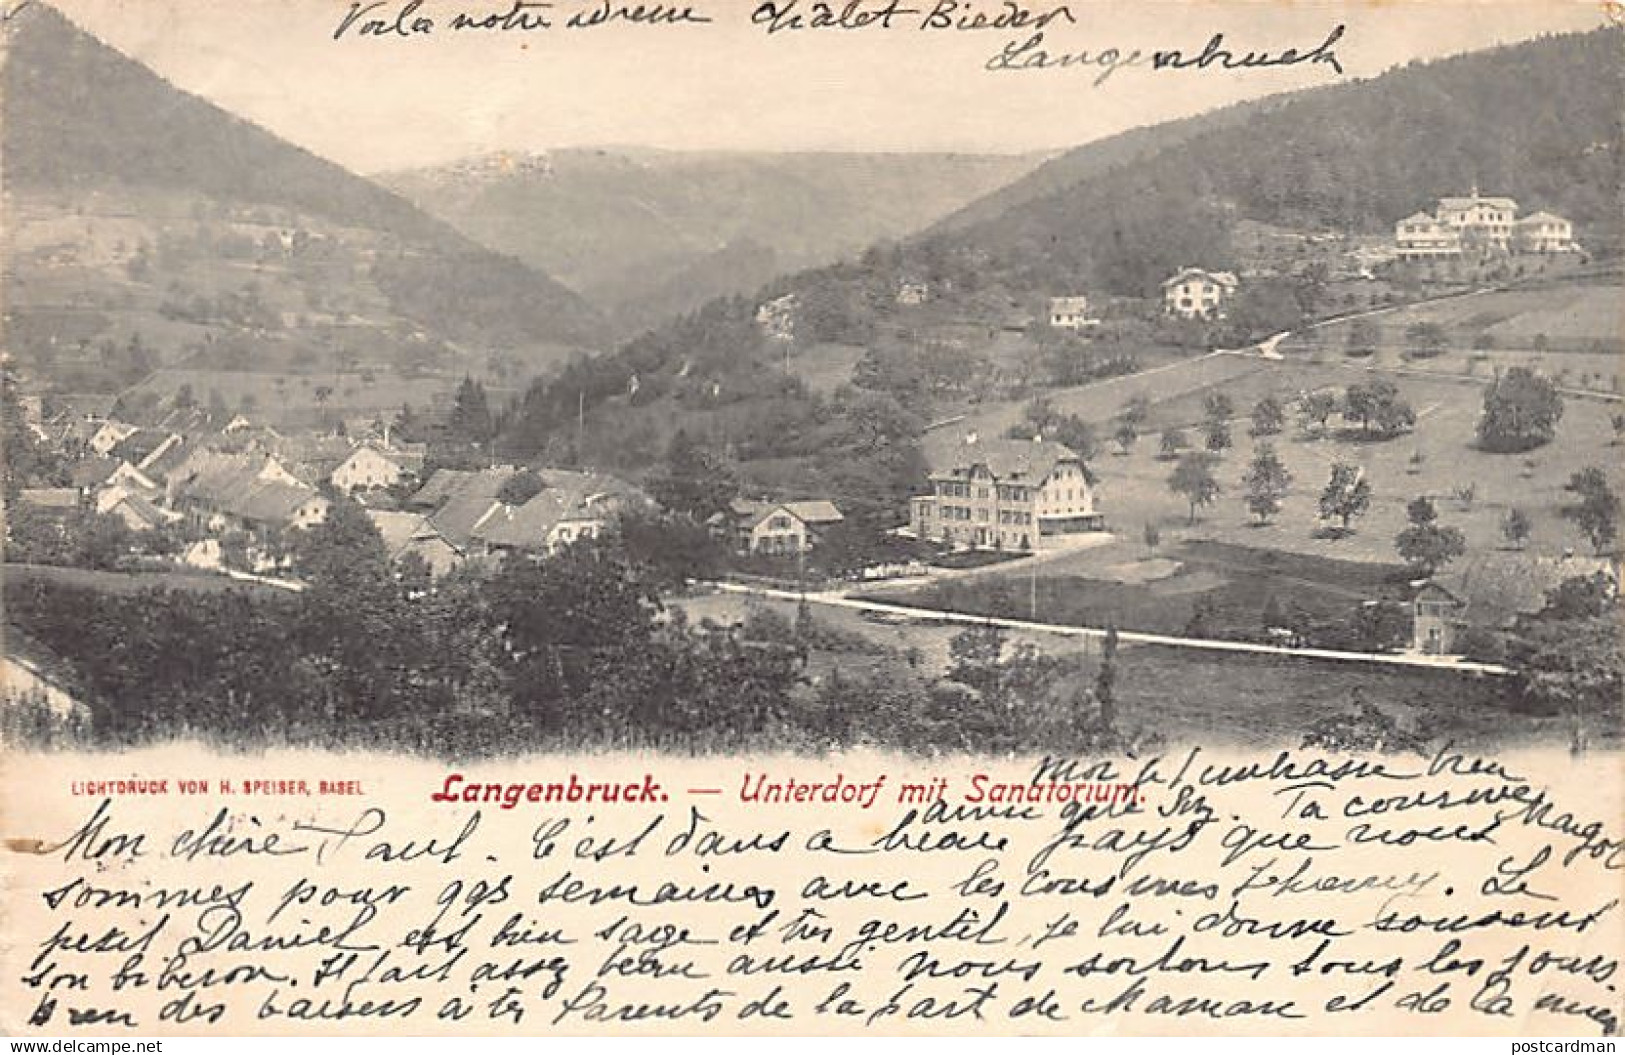 Voila notre adresse Châlet Bieder
Langenbruck
LICHTDRUCK VON H. SPEISER, BASEL
Langenbruck. — Unterdorf mit Sanatorium.
Moi je t'embrasse bien
ainsi que Suz. Ta cousine Margot
Mon chère Paul. C'est dans a beau pays que nous
sommes pour qqs semaines avec les cousines. Le
petit Daniel est bien sage et très gentil, je lui donne souvent
son biberon. Il fait assez beau aussi nous sortons tous les jours
bien des baisers à tes Parents de la part de Maman et de la mien
postcardman